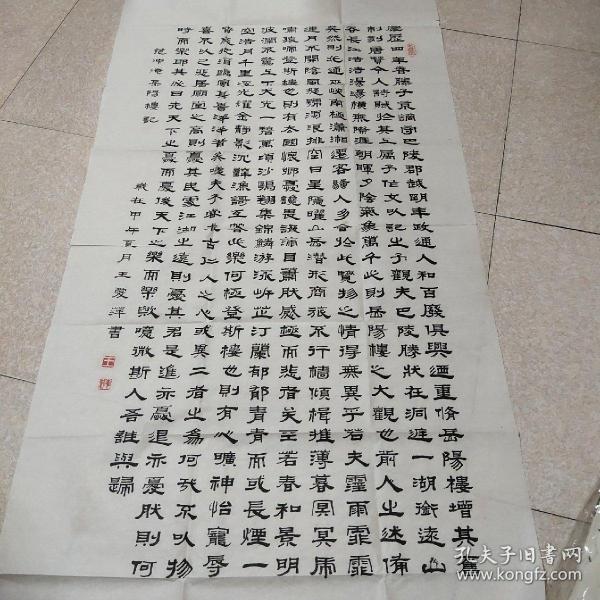 慶歷四年春滕子京謫守巴陵郡越明年政通人和百廢俱興迺重脩岳陽樓增其舊
制刻唐賢今人詩賦於其上屬予作文以記之予觀夫巴陵勝狀在洞庭一湖銜遠山
吞長江浩浩湯湯橫無際涯朝暉夕陰氣象萬千此則岳陽樓之大觀也前人之述備
矣然則北通巫峽南極瀟湘遷客騷人多會於此覽物之情得無異乎若夫霪雨霏霏
連月不開陰風怒號濁浪排空日星隱曜山岳潛形商旅不行檣傾楫摧薄暮冥冥虎
嘯猿啼登斯樓也則有去國懷鄉憂讒畏譏滿目蕭然感極而悲者矣至若春和景明
波瀾不驚上下天光一碧萬頃沙鷗翔集錦鱗游泳岸芷汀蘭郁郁青青而或長煙一
空浩月千里浮光耀金靜影沉璧漁謌互答此樂何極登斯樓也則有心曠神怡寵辱
皆忘把酒臨風其喜洋洋者矣嗟夫予嘗求古仁人之心或異二者之為何哉不以物
喜不以己悲居廟堂之高則憂其民處江湖之遠則憂其君是進亦憂退亦憂然則何
時而樂耶其必曰先天下之憂而憂後天下之樂而樂歟噫微斯人吾誰與歸
范仲淹岳陽樓記
歲在甲午夏月王愛洋書
孔夫子旧书网
www.kongfz.com